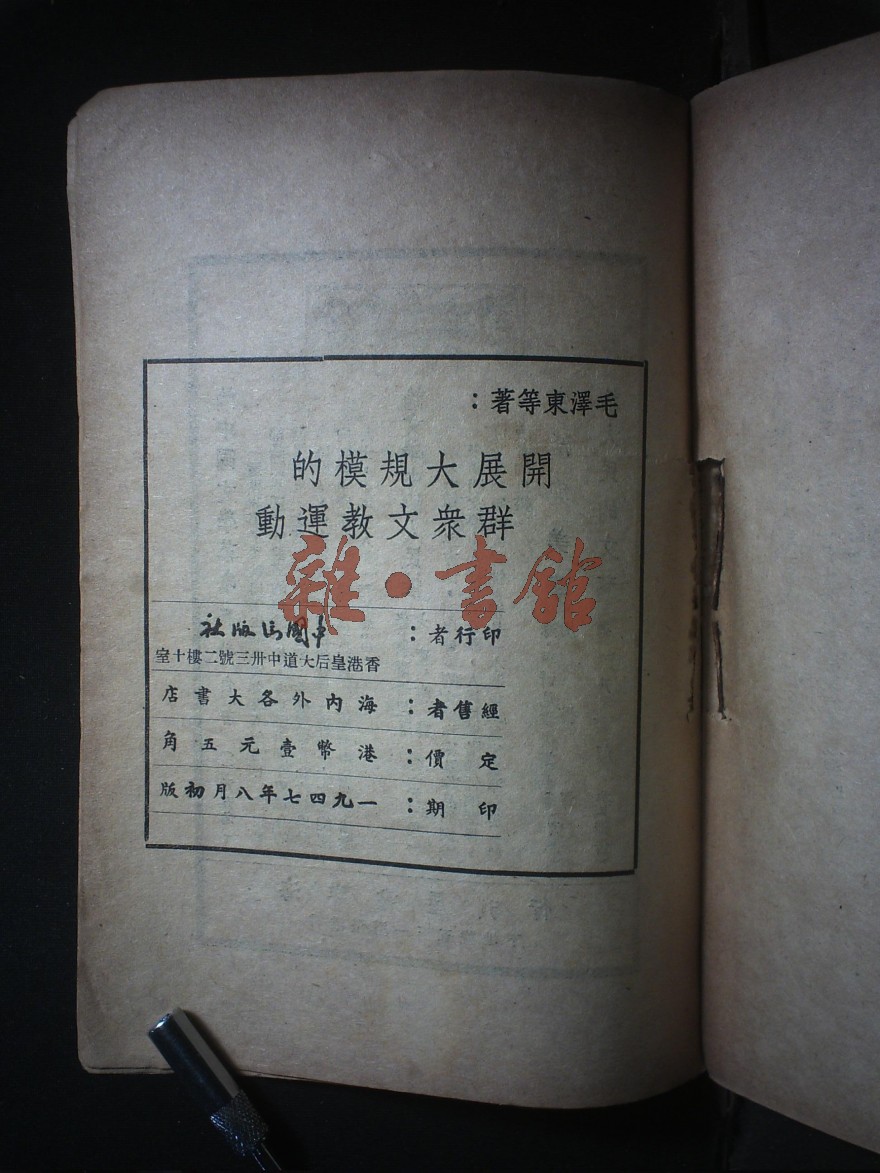 毛澤東等著：
開展大規模的
群衆文教運動
雜·書館
印行者：中國出版社
香港皇后大道中卅三號二樓十室
經售者：海內外各大書店
定價：港幣壹元五角
印期：一九四七年八月初版